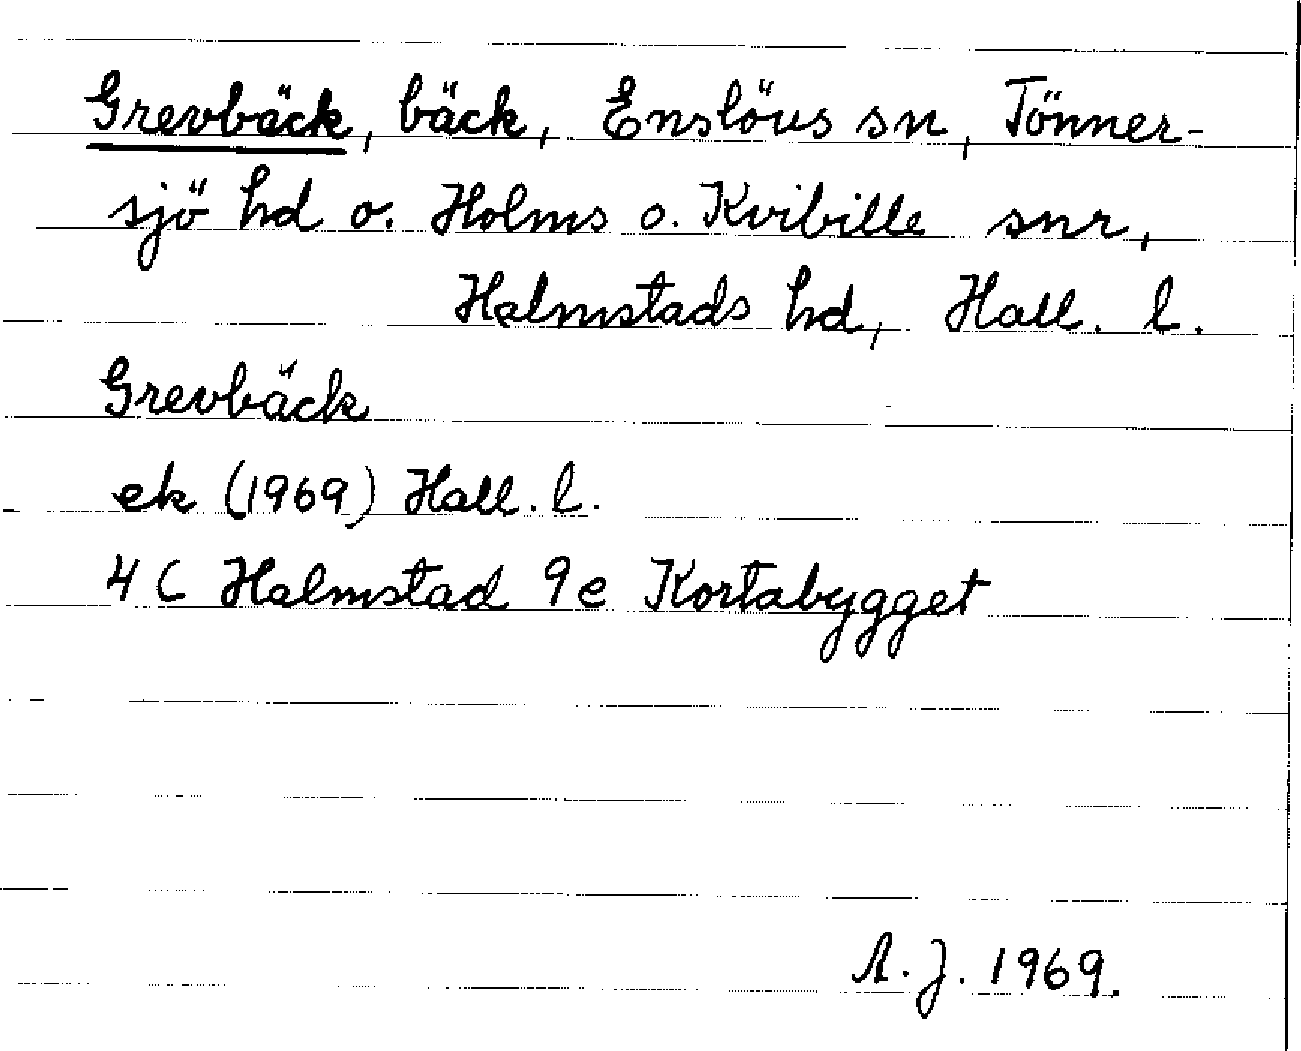 Grevbäck, bäck, Enslövs sn, Tönner-
sjö hd o. Holms o. Kvibille snr,
Halmstads hd, Hall. l.
Grevbäck
ek (1969) Hall. l.
4C Halmstad 9e Kortabygget
A. J. 1969.